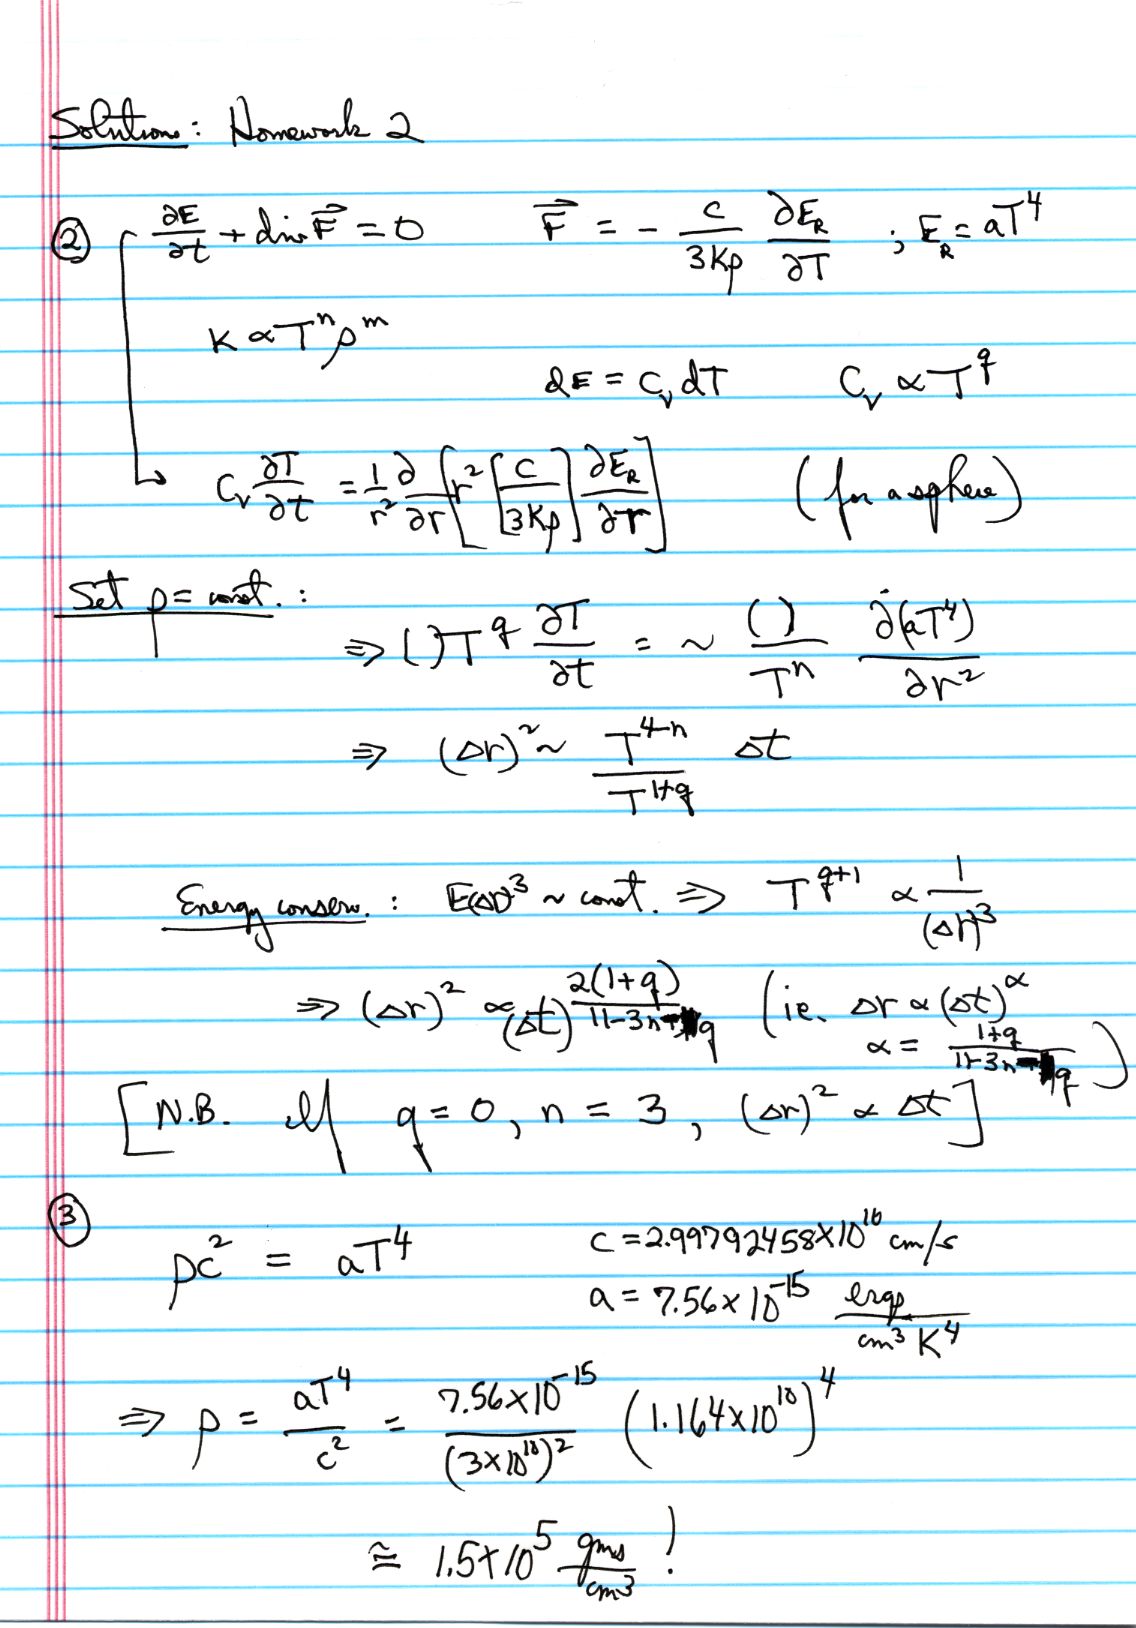 Solutions: Homework 2
② ∂E/∂t + div F⃗ = 0 F⃗ = - c/3Kρ ∂E_R/∂T ; E_R = aT⁴
K ∝ Tⁿ ρᵐ
dE = C_v dT C_v ∝ T^q
C_v ∂T/∂t = 1/r² ∂/∂r [r² [c/3Kρ] ∂E_R/∂r] (for a sphere)
Set ρ = const. :
⇒ ( ) T^q ∂T/∂t = ~ ( )/Tⁿ ∂(aT⁴)/∂r²
⇒ (Δr)² ~ T^(4-n)/T^(1+q) Δt
Energy conserv. : E(Δr)³ ~ const. ⇒ T^(q+1) ∝ 1/(Δr)³
⇒ (Δr)² ∝ (Δt)^(2(1+q)/(11-3n-q)) (ie. Δr ∝ (Δt)^α
α = (1+q)/(11-3n-q) )
[N.B. If q = 0, n = 3, (Δr)² ∝ Δt]
③
ρc² = aT⁴ c = 2.99792458×10¹⁰ cm/s
a = 7.56×10⁻¹⁵ ergs/cm³ K⁴
⇒ ρ = aT⁴/c² = 7.56×10⁻¹⁵/(3×10¹⁰)² (1.164×10¹⁰)⁴
≅ 1.5×10⁵ gms/cm³ !